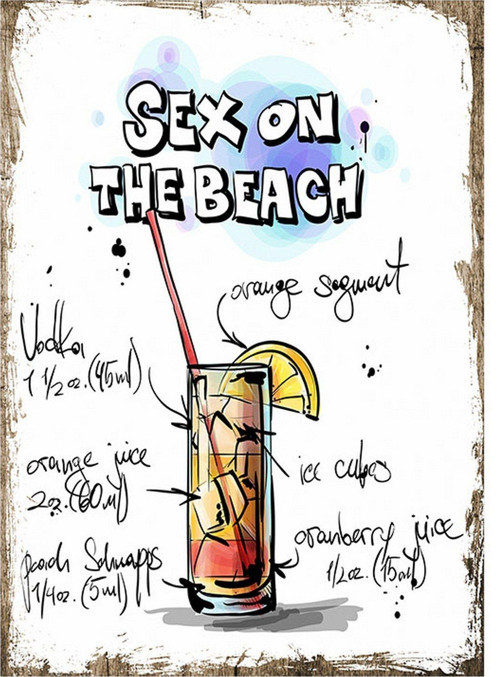 SEX ON
THE BEACH
orange segment
Vodka
1 1/2 oz. (45ml)
orange juice
2oz. (60ml)
ice cubes
peach Schnapps
1/4oz. (5ml)
cranberry juice
1/2oz. (15ml)